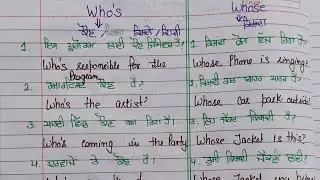 Who's
Whose
ਕੌਣ / ਕਿਸਨੇ / ਕਿਹੜੀ
ਕਿਸਦਾ
1. ਇਸ ਪ੍ਰੋਗਰਾਮ ਲਈ ਕੌਣ ਜ਼ਿੰਮੇਵਾਰ ਹੈ?
Who's responsible for the Program
2. ਕਲਾਕਾਰ ਕੌਣ ਹੈ?
Who's the artist?
3. ਪਾਰਟੀ ਵਿੱਚ ਕੌਣ ਆ ਰਿਹਾ ਹੈ?
Who's coming in the Party
4. ਦਰਵਾਜ਼ੇ ਤੇ ਕੌਣ ਹੈ?
1. ਕਿਸਦਾ ਫੋਨ ਵੱਜ ਰਿਹਾ ਹੈ?
Whose Phone is singing?
2. ਕਿਸਦੀ ਕਾਰ ਬਾਹਰ
Whose car park outside
3. ਇਹ ਜੈਕਟ ਕਿਸਦੀ ਹੈ?
Whose Jacket is this?
4. ਤੁਸੀਂ ਕਿਸਦੀ ਜੈਕਟ
Whose Jacket you